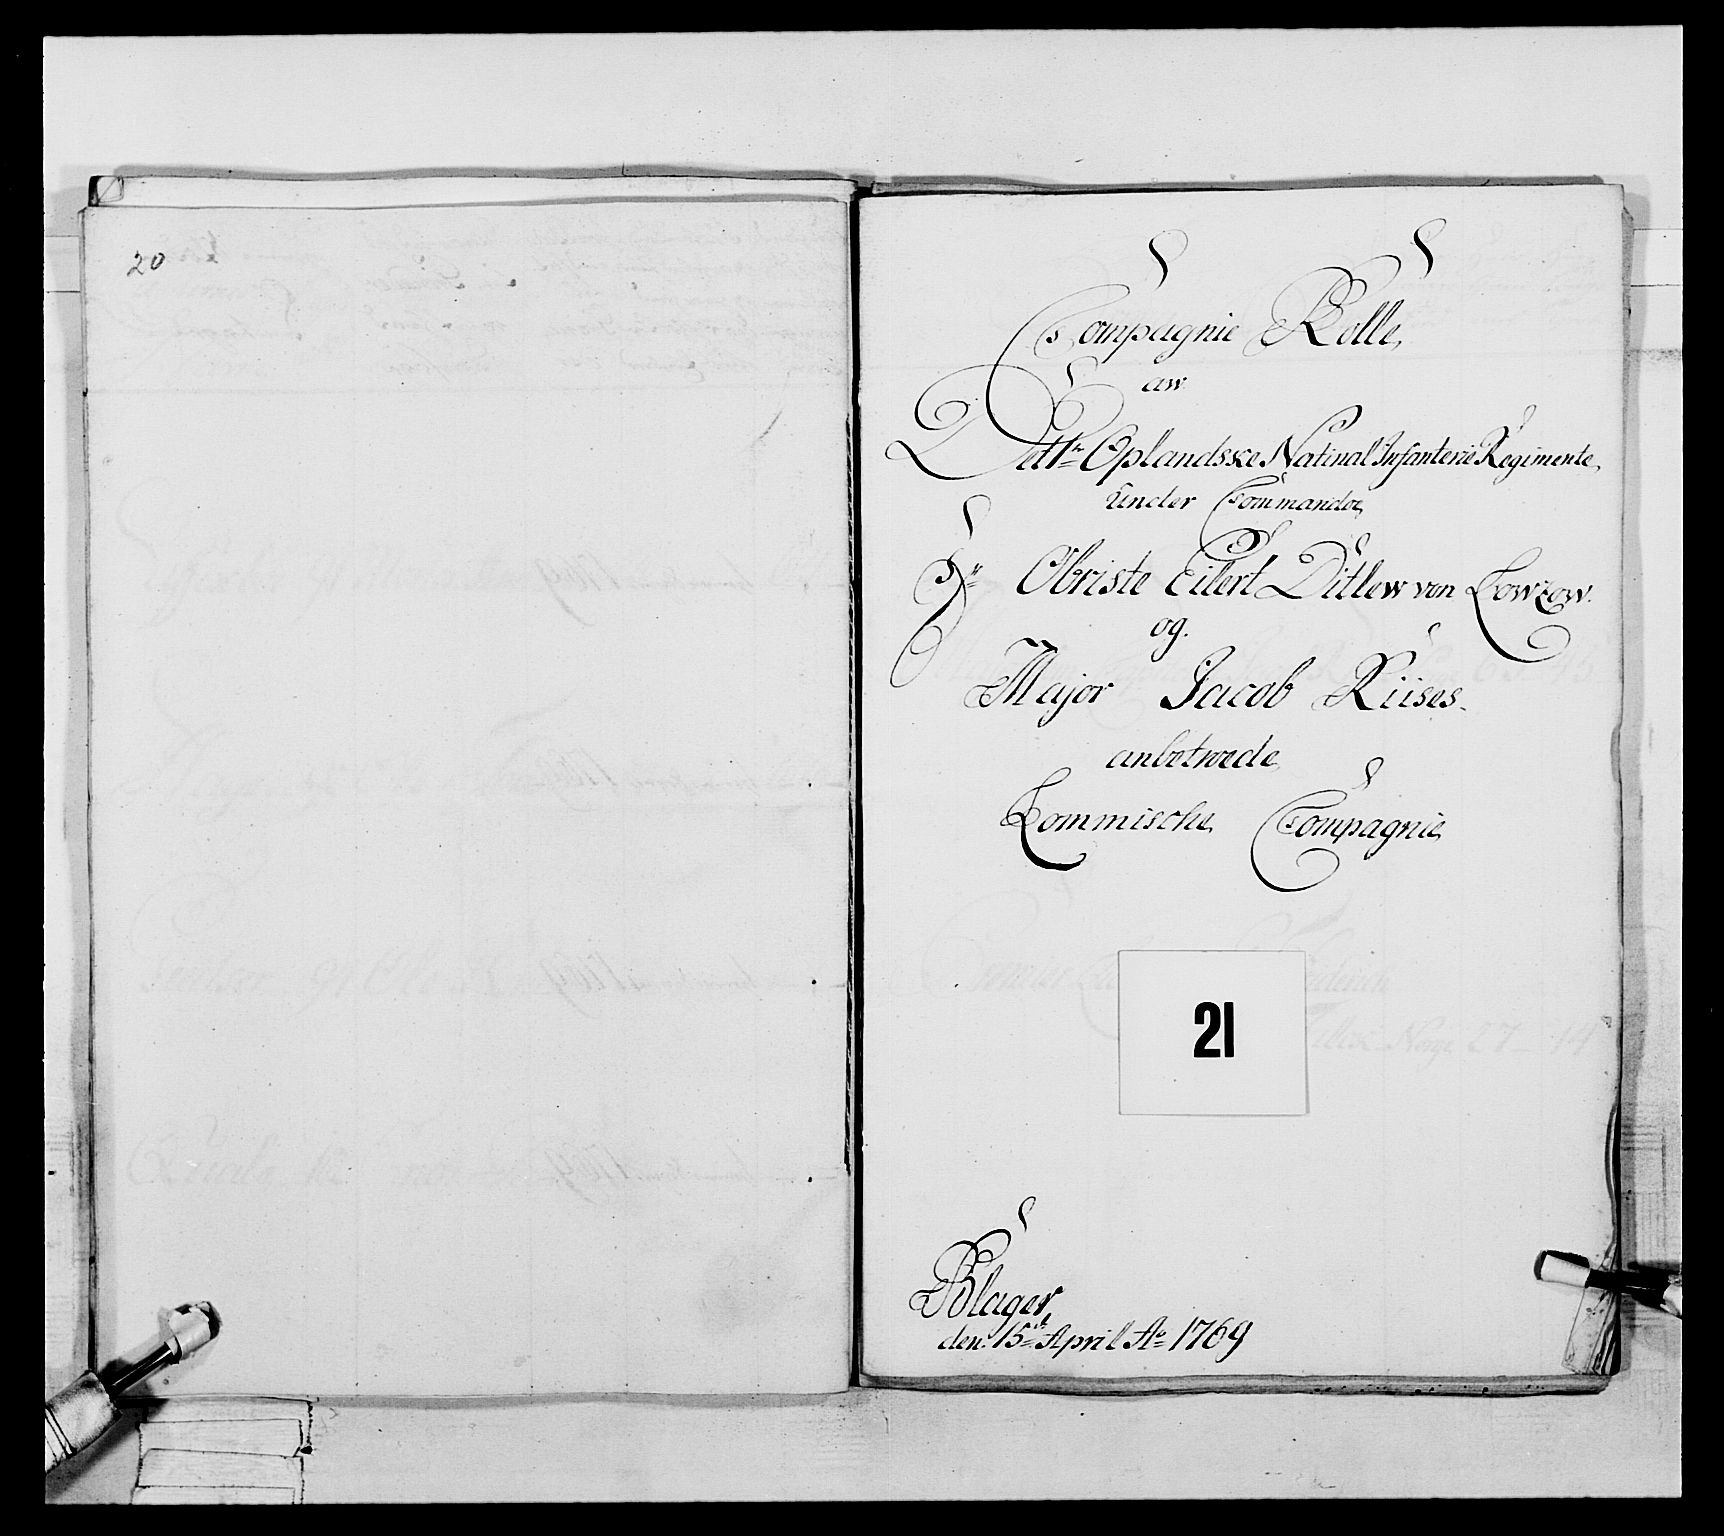 20
Compagnie Rolle,
aw
Det 1te Oplandsske Natinal Infanterie Regimente,
under Commandoe,
Hr Obriste Eilert Ditlew von Lowzow.
og.
Major Jacob Riises.
anbetroede
Lommische Compagnie,
21
Blager,
den 15de April Ao 1769